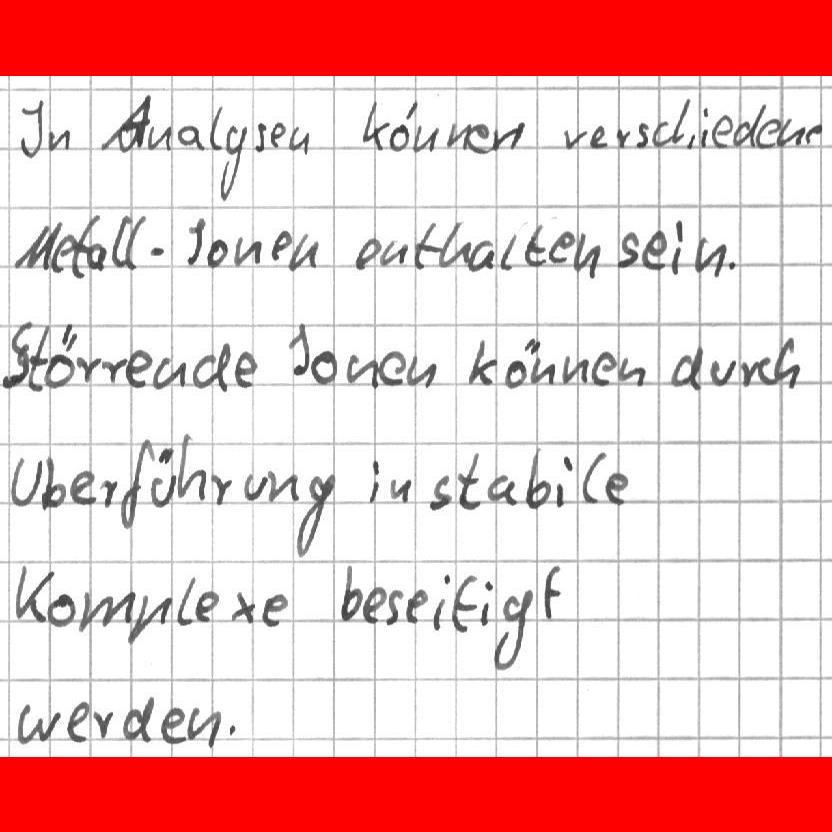 In Analysen können verschiedene
Metall-Ionen enthalten sein.
Störrende Ionen können durch
Uberführung in stabile
Komplexe beseitigt
werden.